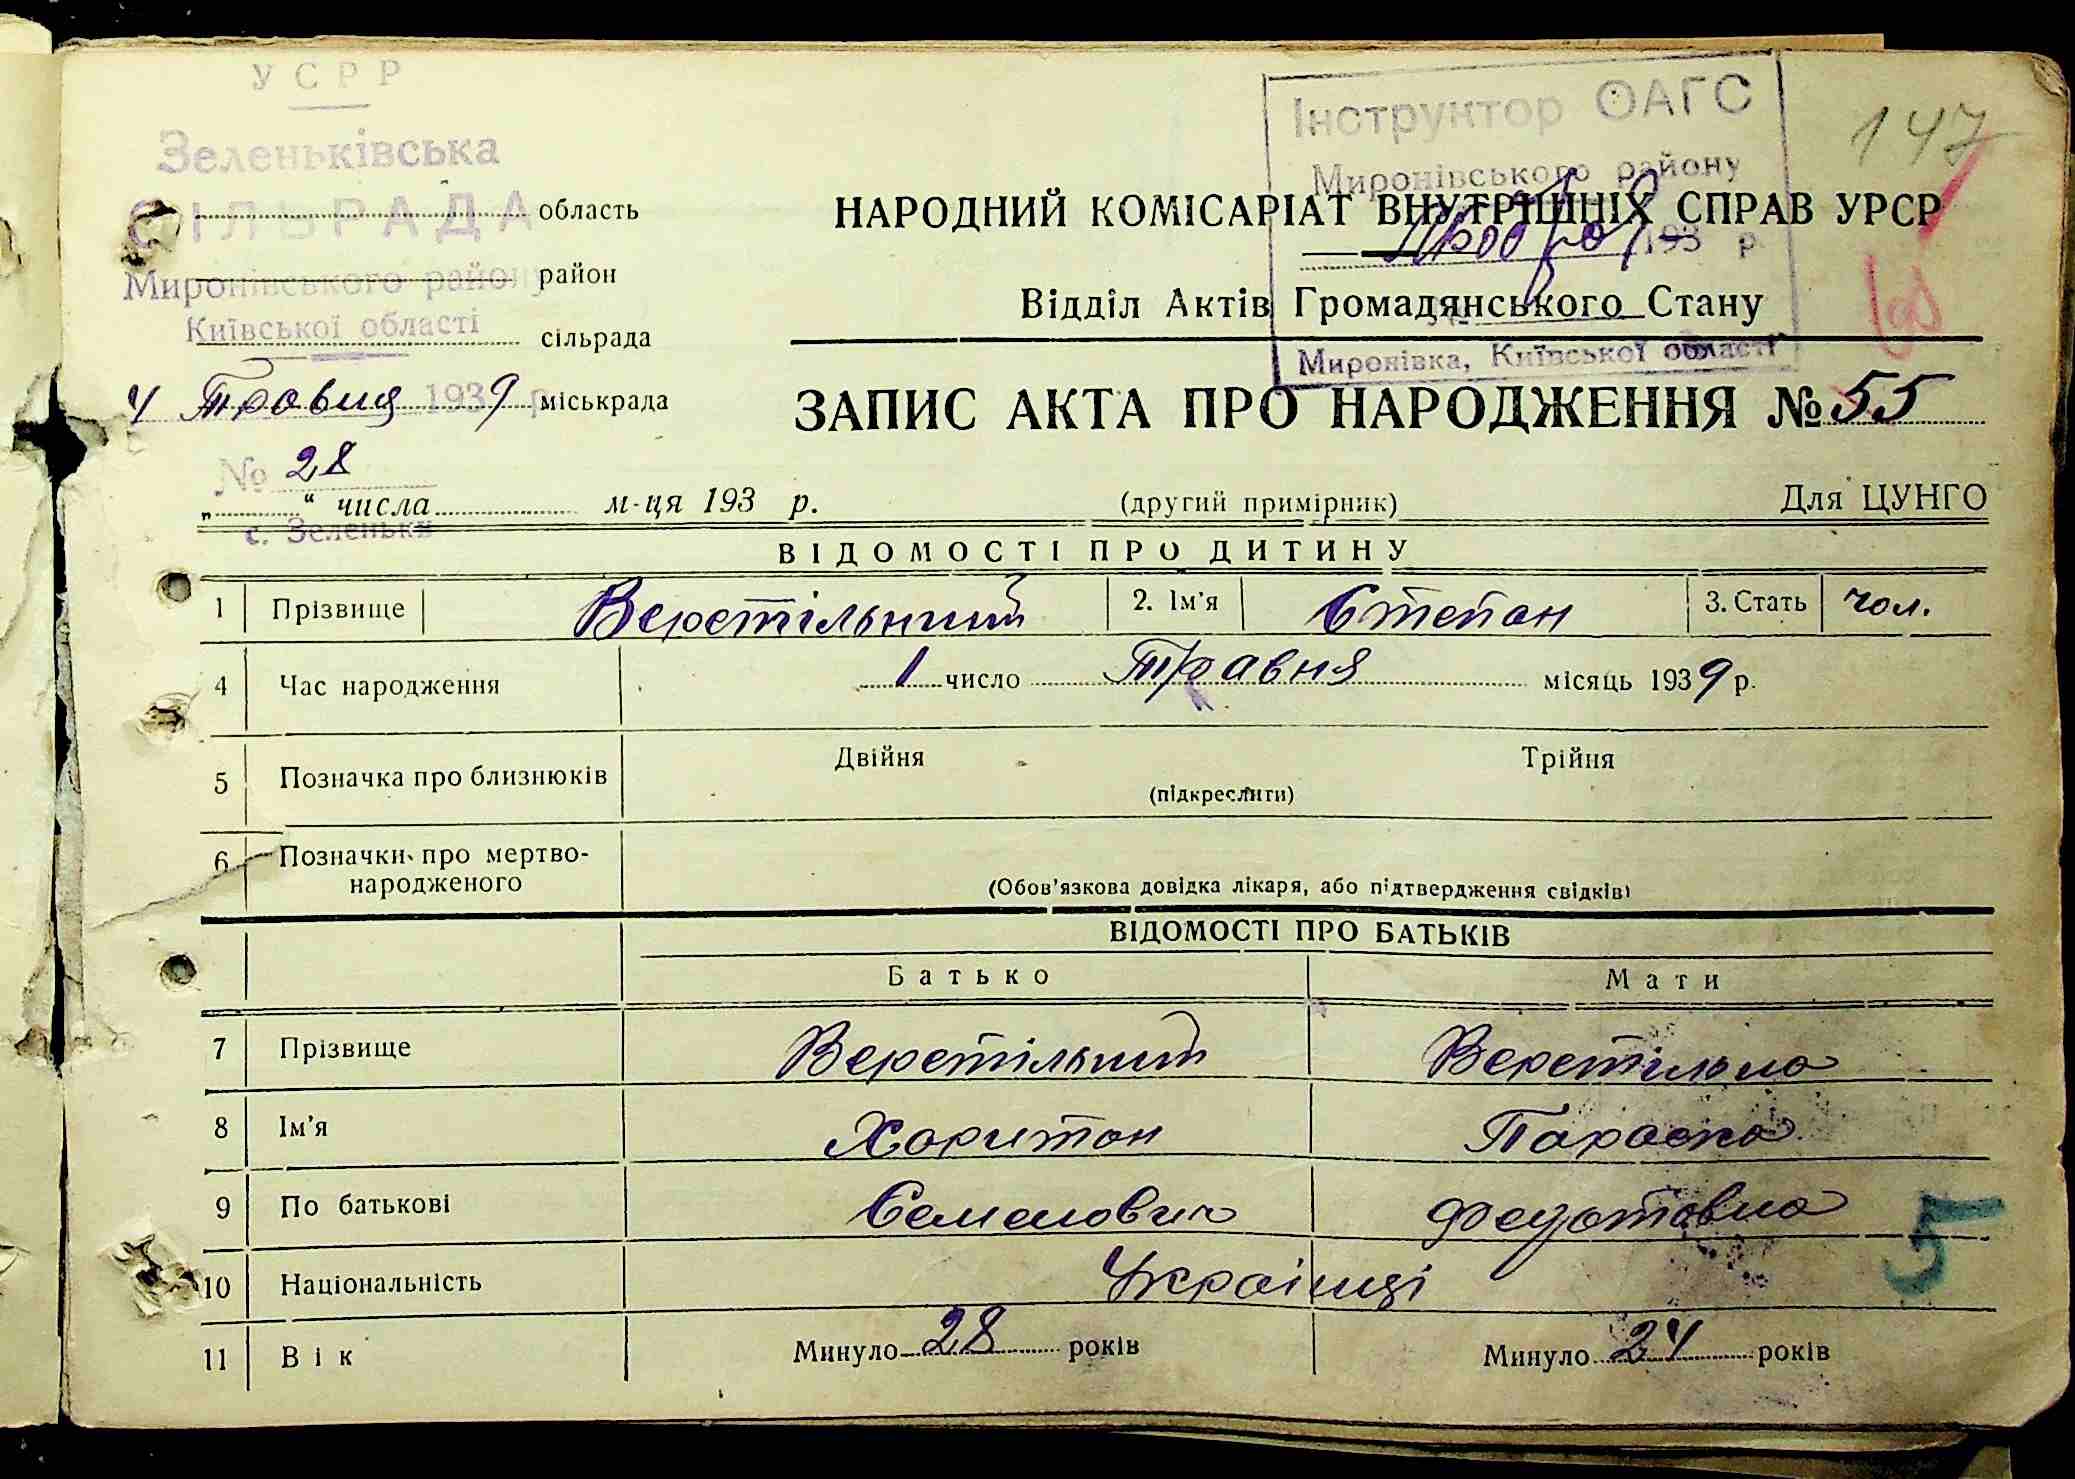 УСРР
Зеленьківська
СІЛЬРАДА
Миронівського району
Київської області
4 Травня 1939 р.
№ 28
с. Зеленьки
область
район
сільрада
міськрада
„ “ числа м-ця 193 р.
Інструктор ОАГС
Миронівського району
193 р.
Миронівка, Київської області
147
НАРОДНИЙ КОМІСАРІАТ ВНУТРІШНІХ СПРАВ УРСР
Відділ Актів Громадянського Стану
ЗАПИС АКТА ПРО НАРОДЖЕННЯ № 55
(другий примірник) Для ЦУНГО
ВІДОМОСТІ ПРО ДИТИНУ
1 Прізвище Веретільний 2. Ім'я Степан 3. Стать чол.
4 Час народження 1 число Травня місяць 1939 р.
5 Позначка про близнюків Двійня Трійня
(підкреслити)
6 Позначки про мертво-
народженого (Обов'язкова довідка лікаря, або підтвердження свідків)
ВІДОМОСТІ ПРО БАТЬКІВ
Батько Мати
7 Прізвище Веретільний Веретільна
8 Ім'я Харитон Параска
9 По батькові Семенович Федотовна
10 Національність Українці
11 Вік Минуло 28 років Минуло 24 років
5